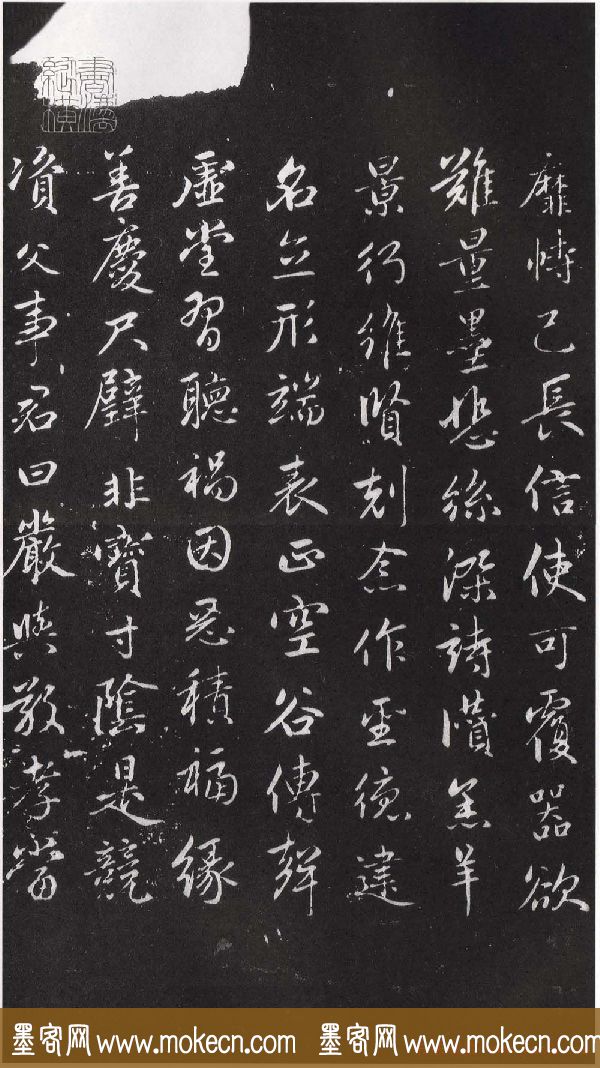 靡恃己長信使可覆器欲
難量墨悲絲染詩讚羔羊
景行維賢剋念作聖德建
名立形端表正空谷傳聲
虛堂習聽禍因惡積福緣
善慶尺璧非寶寸陰是競
資父事君曰嚴與敬孝當
墨客网 www.mokecn.com 墨客网 www.mokecn.com